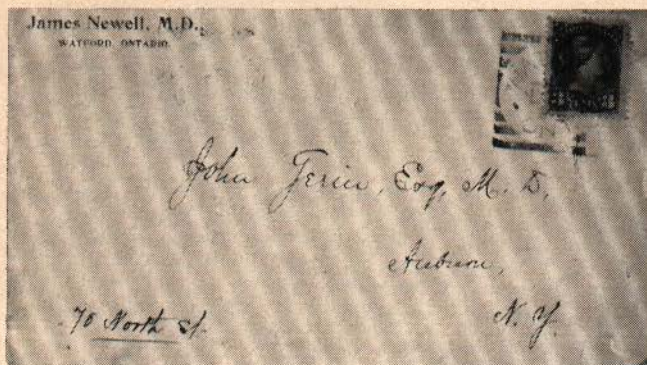 James Newell, M.D.,
WATFORD, ONTARIO.
John Gerin, Esq, M. D,
Auburn,
70 North St.
N. Y.